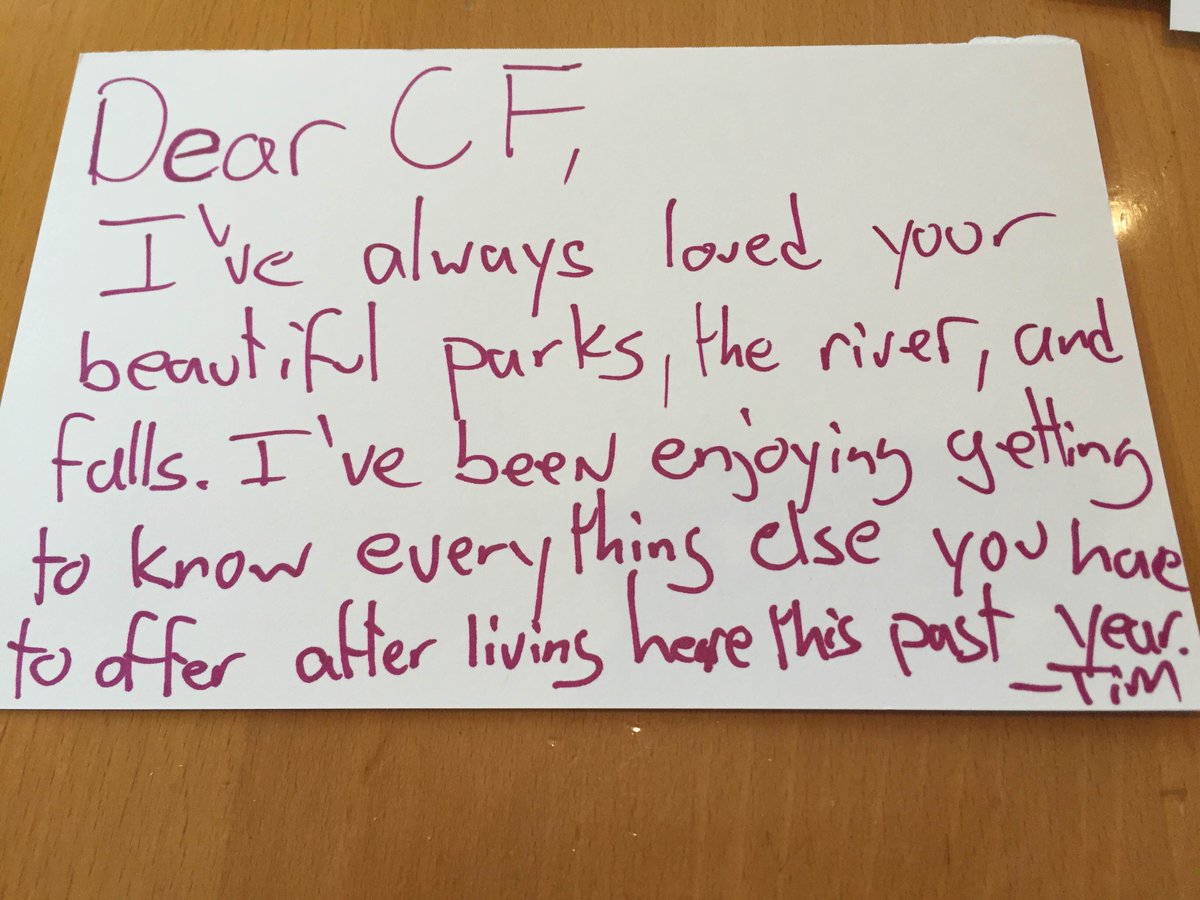 Dear CF,
I've always loved your
beautiful parks, the river, and
falls. I've been enjoying getting
to know everything else you hae
to offer after living here this past year.
-Tim